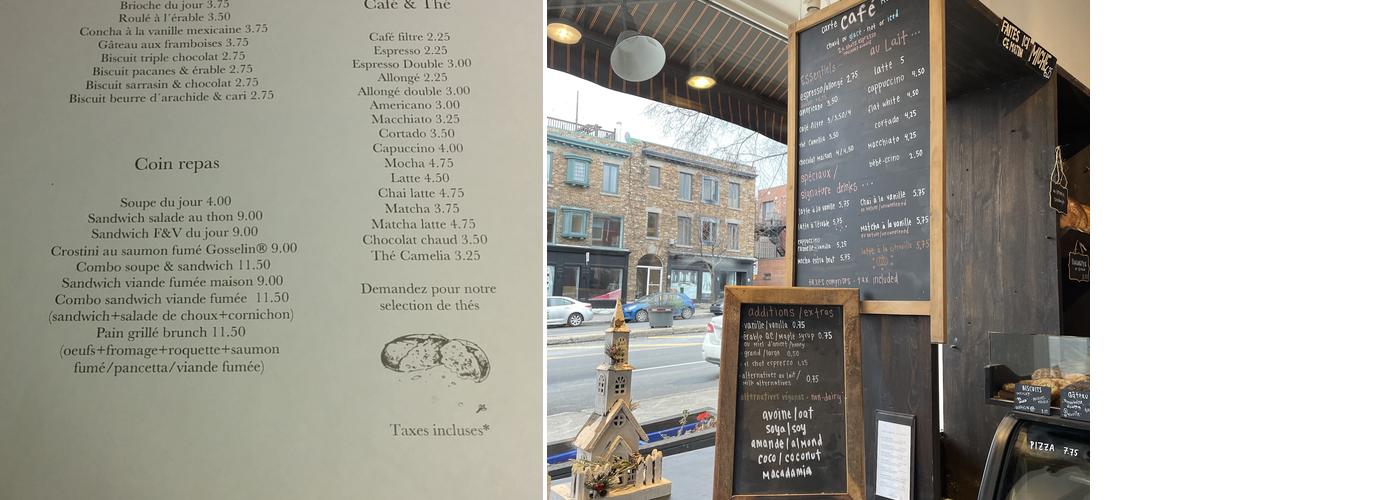 Brioche du jour 3.75
Roulé à l'érable 3.50
Concha à la vanille mexicaine 3.75
Gâteau aux framboises 3.75
Biscuit triple chocolat 2.75
Biscuit pacanes & érable 2.75
Biscuit sarrasin & chocolat 2.75
Biscuit beurre d'arachide & cari 2.75
Coin repas
Soupe du jour 4.00
Sandwich salade au thon 9.00
Sandwich F&V du jour 9.00
Crostini au saumon fumé Gosselin® 9.00
Combo soupe & sandwich 11.50
Sandwich viande fumée maison 9.00
Combo sandwich viande fumée 11.50
(sandwich+salade de choux+cornichon)
Pain grillé brunch 11.50
(oeufs+fromage+roquette+saumon
fumé/pancetta/viande fumée)
Café & Thé
Café filtre 2.25
Espresso 2.25
Espresso Double 3.00
Allongé 2.25
Allongé double 3.00
Americano 3.00
Macchiato 3.25
Cortado 3.50
Capuccino 4.00
Mocha 4.75
Latte 4.50
Chai latte 4.75
Matcha 3.75
Matcha latte 4.75
Chocolat chaud 3.50
Thé Camelia 3.25
Demandez pour notre
selection de thés
Taxes incluses*
carte café
chaud ou glacé - hot or iced
Essentiels
espresso/allongé 2,75
americano 3,50
café filtre 3/3,50/4
thé Camellia 3,50
chocolat maison 4/4,50
au Lait...
latte 5
cappuccino 4,50
flat white 4,50
cortado 4,25
macchiato 4,25
bébé-ccino 2,50
spéciaux /
signature drinks ...
latte à la vanille 5,75
latte à l'érable 5,75
mocha extra brut 5,75
Chai à la vanille 5,75
Matcha à la vanille 5,75
latte à la citrouille 5,75
taxes comprises - tax included
additions / extras
vanille/vanilla 0,75
érable QC/maple syrup 0,75
ou miel d'anicet/honey
grand/large 0,50
shot espresso 1,25
alternatives au lait/
milk alternatives 0,75
alternatives véganes - non-dairy
avoine/oat
soya/soy
amande/almond
coco/coconut
Macadamia
FAITES
MICHE
BISCUITS
Gâteau
PIZZA 7.75